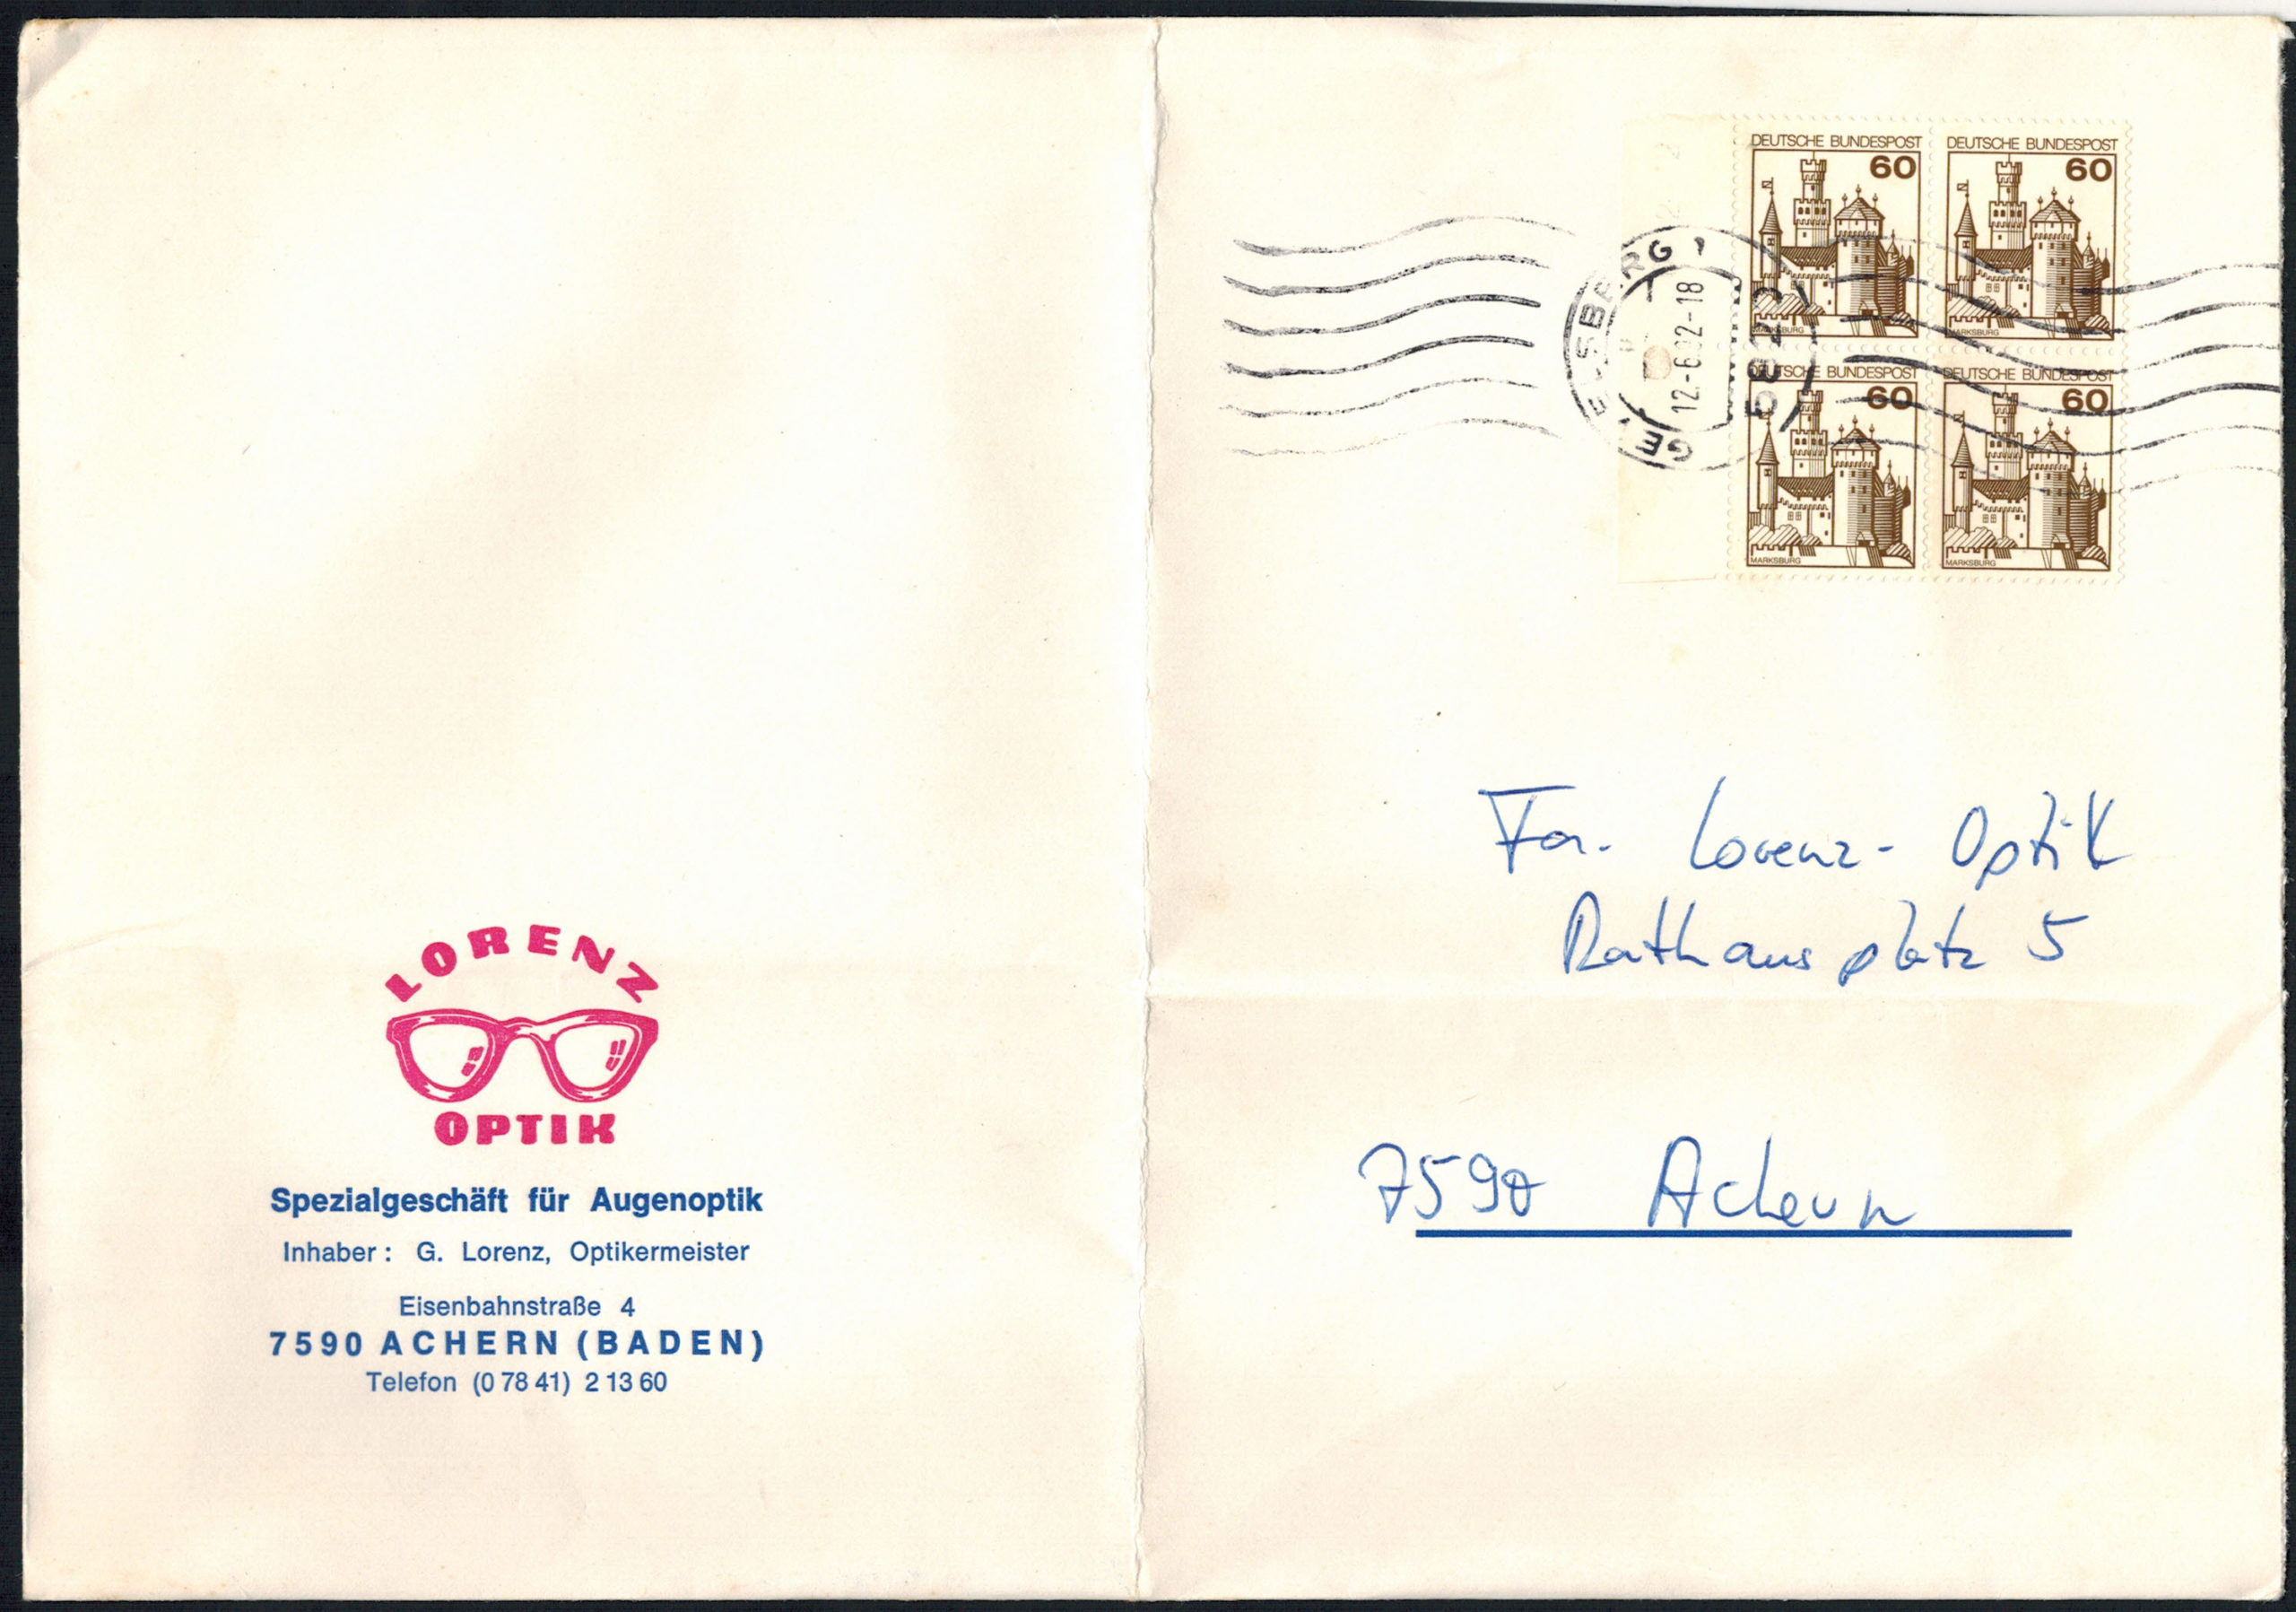 DEUTSCHE BUNDESPOST DEUTSCHE BUNDESPOST
60 60
MARKSBURG MARKSBURG
DEUTSCHE BUNDESPOST DEUTSCHE BUNDESPOST
60 60
MARKSBURG MARKSBURG
GEVELSBERG 1
5820
Fa. Lorenz-Optik
Rathausplatz 5
7590 Achern
LORENZ
OPTIK
Spezialgeschäft für Augenoptik
Inhaber: G. Lorenz, Optikermeister
Eisenbahnstraße 4
7590 ACHERN (BADEN)
Telefon (0 78 41) 2 13 60